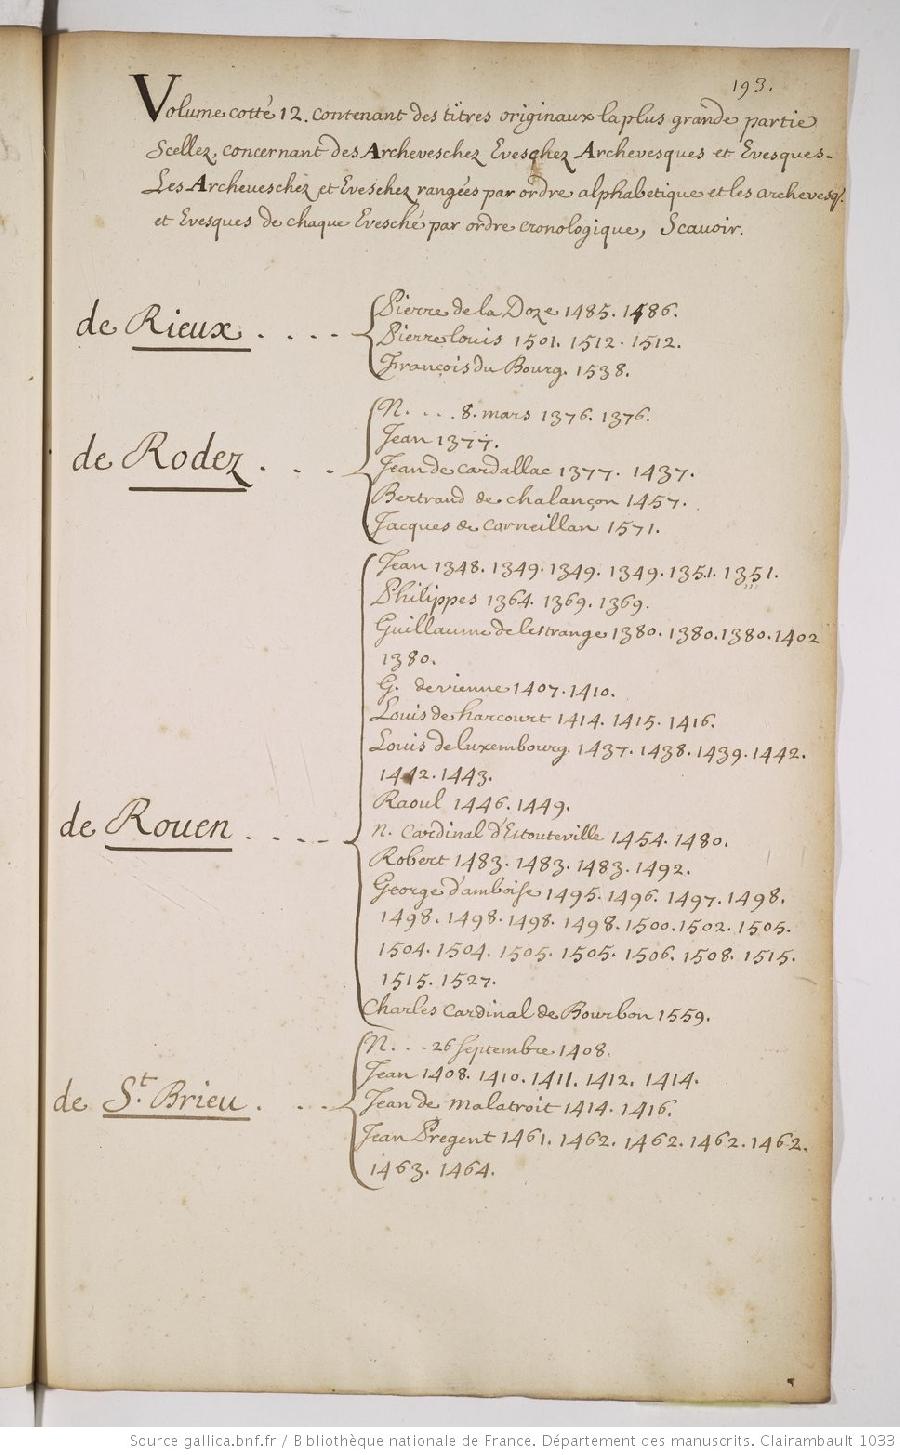 193.
Volume cotté 12. contenant des titres originaux la plus grande partie
Scellez, concernant des Archeveschez Eveschez Archevesques et Evesques.
Les Archeveschez et Eveschez rangées par ordre alphabetique et les archevesq.
et Evesques de chaque Evesché par ordre cronologique, Scauoir.
de Rieux . . . . -
Pierre de la Doze 1485. 1486.
Pierre louis 1501. 1512. 1512.
François du Bourg. 1538.
de Rodez . . . -
N. . . . 8. mars 1376. 1376.
Jean 1377.
Jean de cardallac 1377. 1437.
Bertrand de chalançon 1457.
Jacques de Corneillan 1571.
de Rouen . . . -
Jean 1348. 1349. 1349. 1349. 1351. 1351.
Philippes 1364. 1369. 1369.
Guillaume de lestrange 1380. 1380. 1380. 1402
1380.
G. de vienne 1407. 1410.
Louis de harcourt 1414. 1415. 1416.
Louis de luxembourg. 1437. 1438. 1439. 1442.
1442. 1443.
Raoul 1446. 1449.
n. Cardinal d'Estouteville 1454. 1480.
Robert 1483. 1483. 1483. 1492.
George d'amboise 1495. 1496. 1497. 1498.
1498. 1498. 1498. 1498. 1500. 1502. 1505.
1504. 1504. 1505. 1505. 1506. 1508. 1515.
1515. 1527.
Charles Cardinal de Bourbon 1559.
de St. Brieu . . . -
N. . . . 26 Septembre 1408.
Jean 1408. 1410. 1411. 1412. 1414.
Jean de Malatroit 1414. 1416.
Jean Pregent 1461. 1462. 1462. 1462. 1462.
1463. 1464.
Source gallica.bnf.fr / Bibliothèque nationale de France. Département des manuscrits. Clairambault 1033